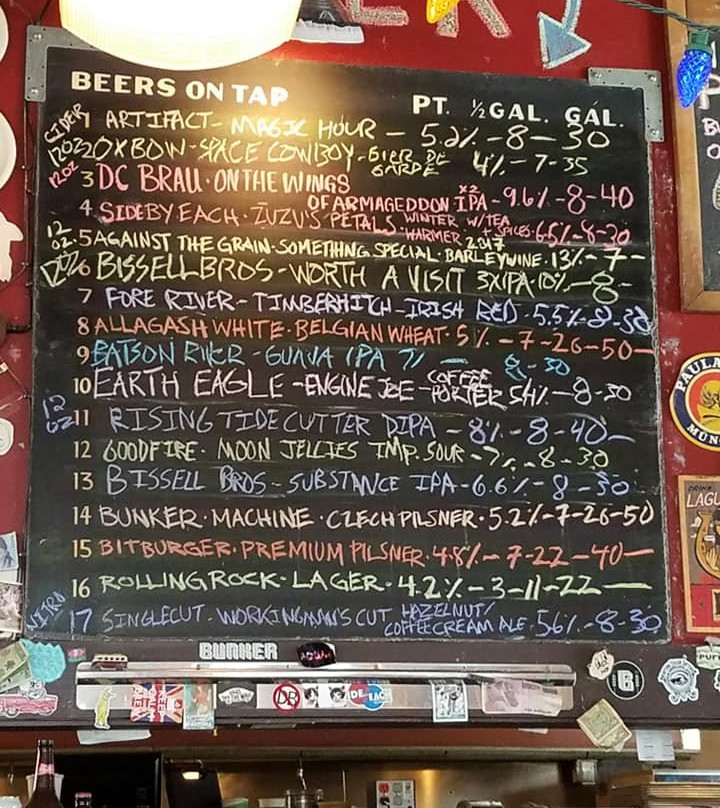 BEERS ON TAP
PT. ½GAL. GAL.
CIDER 1 ARTIFACT- MAGIC HOUR - 5.2%-8-30
12OZ 2 OXBOW-SPACE COWBOY-BIER DE GARDE 4%-7-35
12OZ 3 DC BRAU·ON THE WINGS
OF ARMAGEDDON X2 IPA-9.6%-8-40
4 SIDE BY EACH·ZUZU'S PETALS·WINTER WARMER W/TEA + SPICES·6.5%-8-30
12 OZ. 5 AGAINST THE GRAIN·SOMETHING SPECIAL·BARLEYWINE 2017·13%-7-
12OZ 6 BISSELL BROS-WORTH A VISIT 3XIPA·10%-8-
7 FORE RIVER-TIMBERHITCH-IRISH RED-5.5%-8-30
8 ALLAGASH WHITE·BELGIAN WHEAT·5%-7-26-50-
9 BATSON RIVER-GUAVA IPA 7% - 8-30
10 EARTH EAGLE-ENGINE JOE-COFFEE PORTER 5.4%-8-30
12 OZ 11 RISING TIDE CUTTER DIPA-8%-8-40-
12 GOODFIRE·MOON JELLIES IMP. SOUR-7%-8-30
13 BISSELL BROS-SUBSTANCE IPA-6.6%-8-30
14 BUNKER·MACHINE·CZECH PILSNER·5.2%-7-26-50
15 BITBURGER·PREMIUM PILSNER·4.8%-7-22-40-
16 ROLLING ROCK·LAGER·4.2%-3-11-22-
NITRO 17 SINGLECUT-WORKINGMAN'S CUT HAZELNUT/COFFEE CREAM ALE·5.6%-8-30
BUNKER
PAULA
MÜN
LAG
B